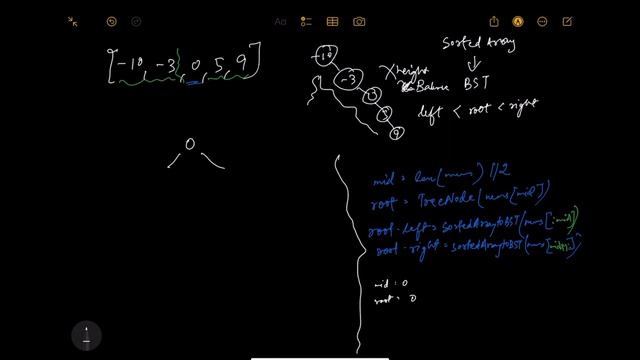 [-10, -3, 0, 5, 9]
0
-10
-3
5
9
Sorted Array
height
Balance BST
left < root < right
mid = len(nums) // 2
root = TreeNode(nums[mid])
root.left = sortedArraytoBST(nums[:mid])
root.right = sortedArraytoBST(nums[mid+1:])
mid = 0
root = 0